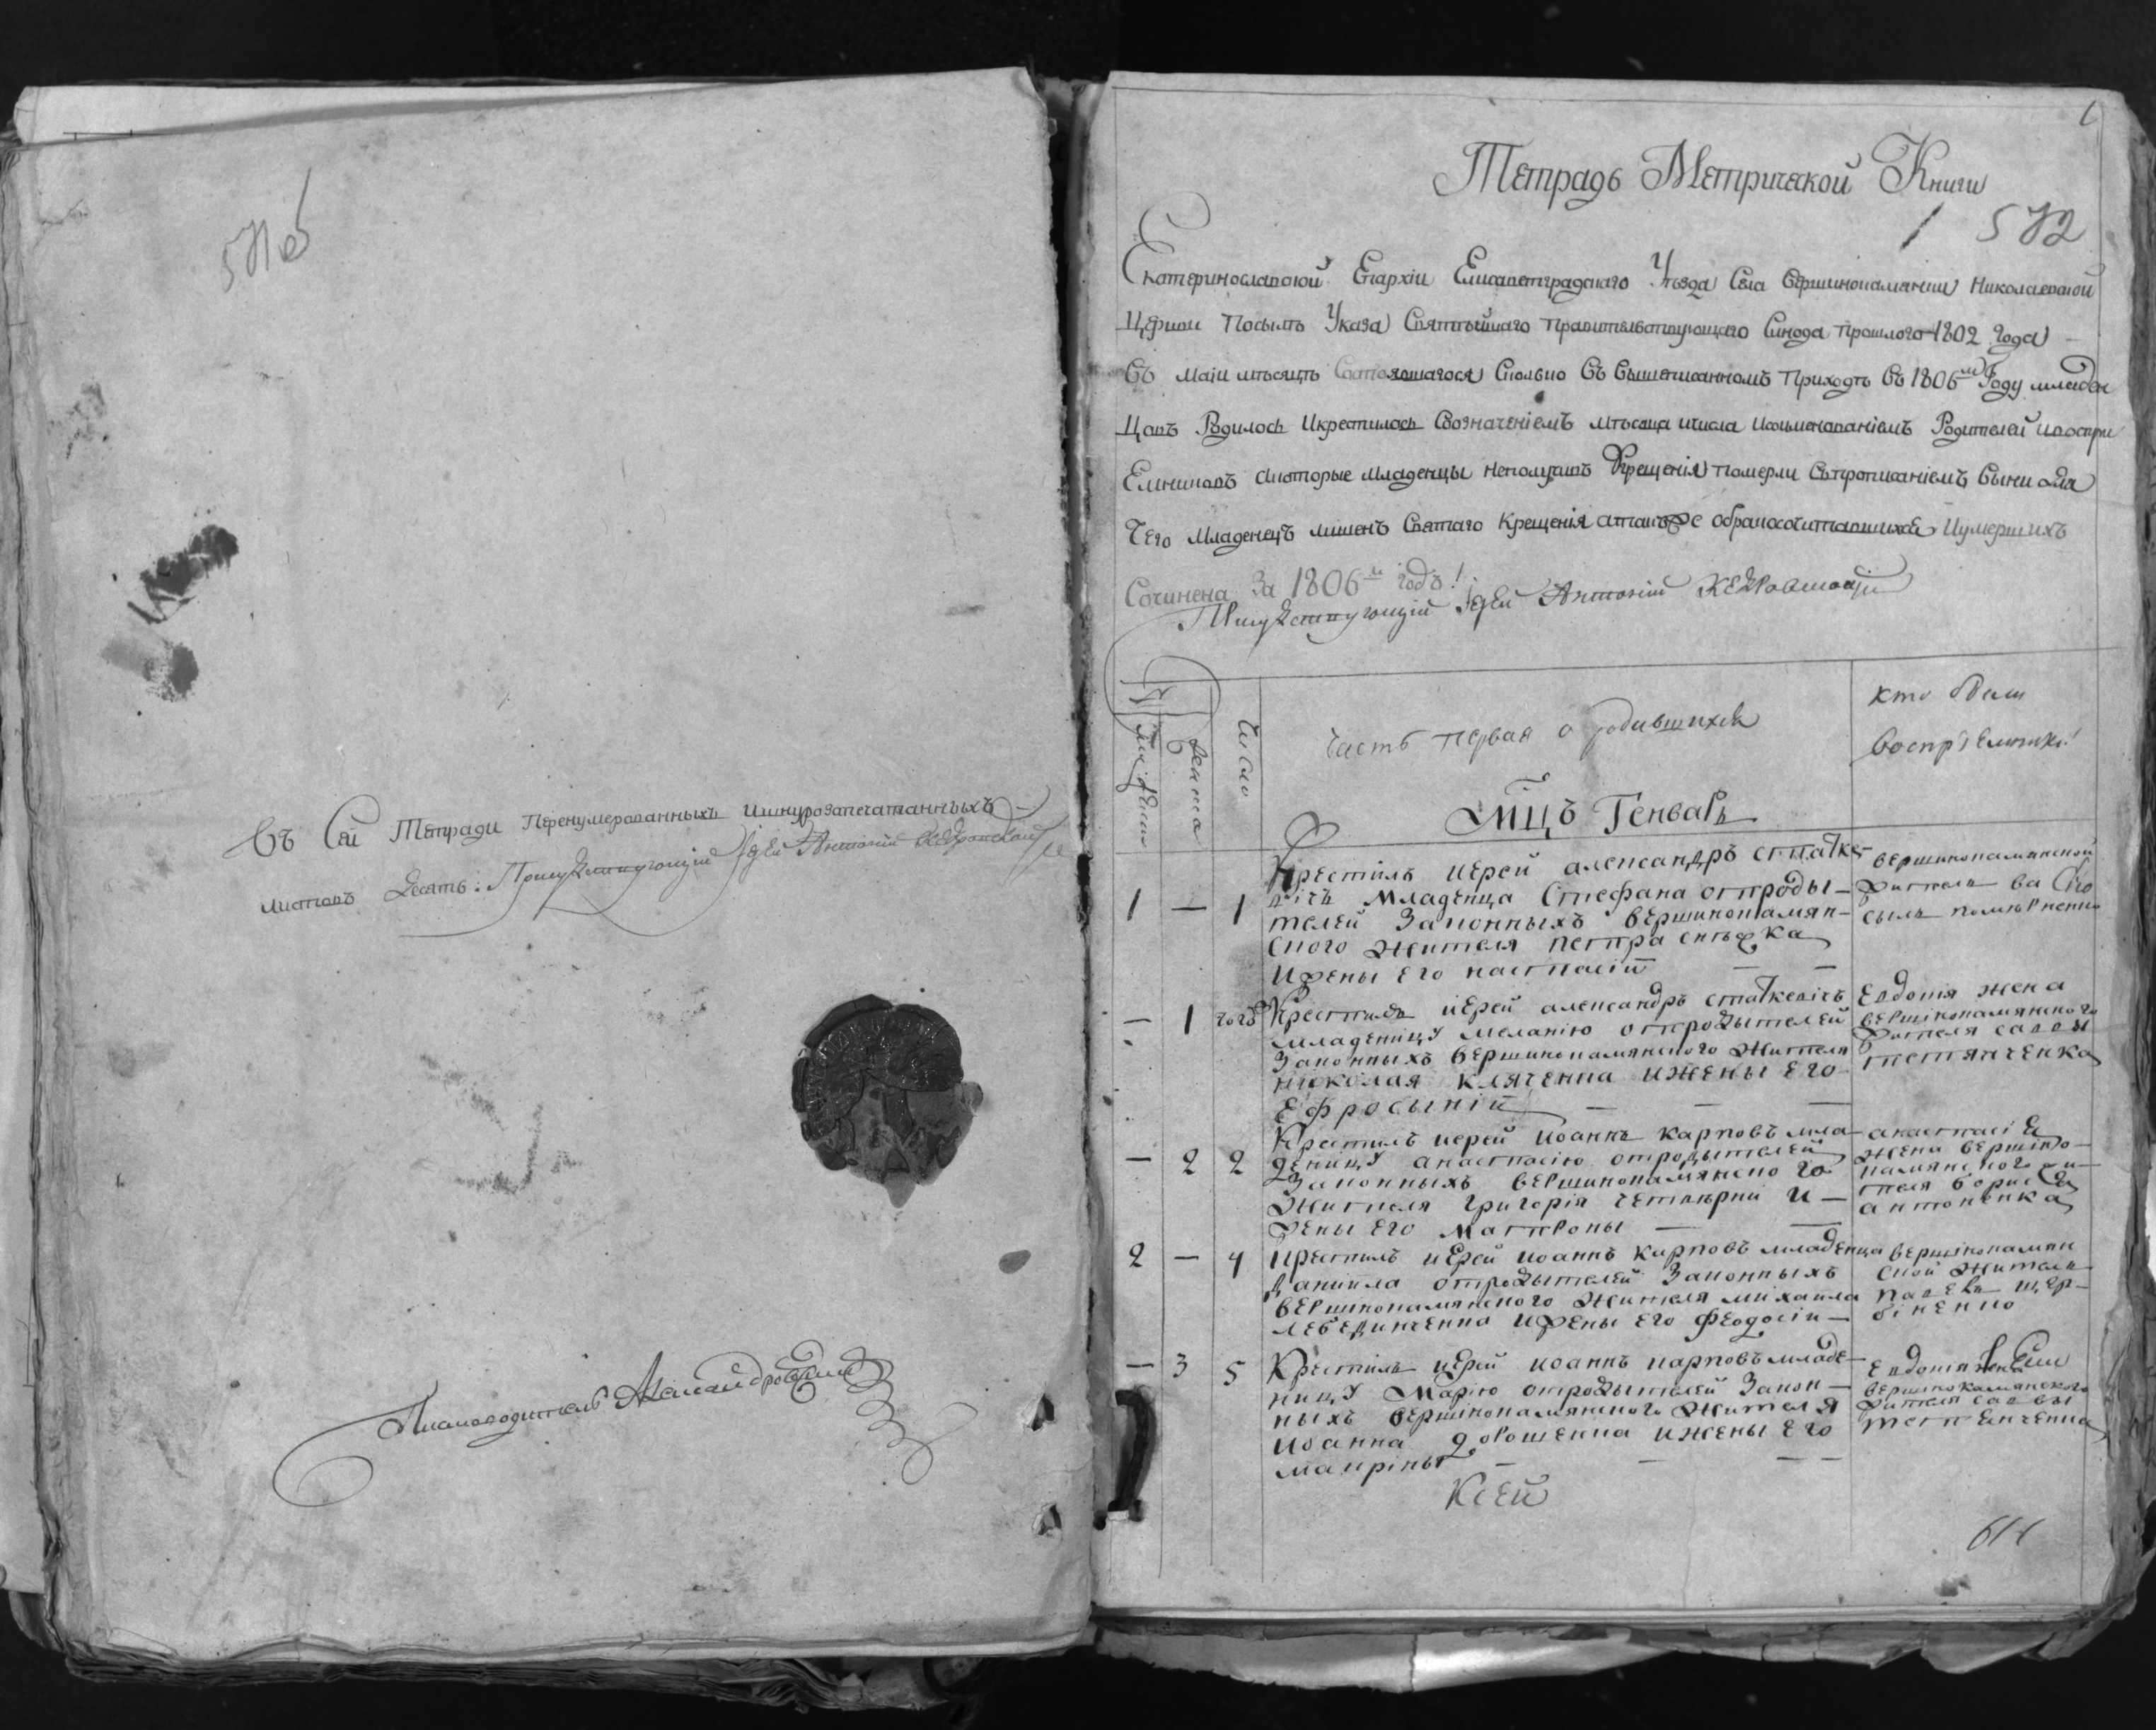 571об
Въ Сей Тетради Перенумерованныхъ Ишнурозапечатанныхъ
листовъ Десять: Присудствующий Іерей Антоній Кедровский
Писмоводитель Александровский
1
Тетрадь Метрической Книги
1 572
Екатеринославской Епархіи Елисаветградскаго Уѣзда Села Вершинокаменки Николаевской
Церкви Посылѣ Указа Святѣйшаго Правительствующаго Синода прошлого 1802 года
Въ маіи мѣсяцѣ Состоявшагося Сколько Въ Вышеписанномъ Приходѣ Въ 1806м Году младен
Цовъ Родилось Икрестилось Созначеніемъ мѣсяца ичисла Исыменованіемъ Родителей ивоспри
Емниковъ Акоторые младенцы Неполучивъ Крещенія померли Съпрописаніемъ Вини для
Чего Младенецъ лишенъ Святаго Крещенія атакоже обракосочитавшихся Иумершихъ
Сочинена За 1806й годъ!
Присудствующій Іерей Антоній Кедровский
Число
Часть первая о родившихся
кто были
воспріемники!
Мцъ Генварь
1 — 1
Крестилъ иерей александръ статке-
вичъ Младенца Стефана отроды-
телей Законныхъ вершинокамян-
ского жителя петра
Ижены его настасіи — —
вершинокамянской
житель
— 1 того
Крестилъ иерей александръ статкевичъ
младеницу меланію отродытелей
Законныхъ вершинокамянского жителя
николая кляченка ижены его
Ефросыніи — — —
Евдокія жена
вершинокамянского
жителя саввы
тетянченка
— 2 2
Крестилъ иерей иоаннъ карповъ мла-
деницу анастасію отродытелей
Законныхъ вершинокамянского
жителя григорія четвѣрни и —
жены его матроны — —
анастасіЯ
жена вершино-
камянского жи-
теля бориса
антоненка
2 — 4
Крестилъ иерей иоаннъ карповъ младенца
даніила отродытелей Законныхъ
вершинокамянского жителя михаила
лебединченка ижены его феодосіи —
вершинокамян
ской житель
— 3 5
Крестилъ иерей иоаннъ карповъ младе-
ницу Марію отродытелей Закон-
ныхъ вершинокамянского жителя
иоанна дорошенка ижены его
маіріны — — —
вершинокамянского
жителя саввы
тетянченка
Ксей